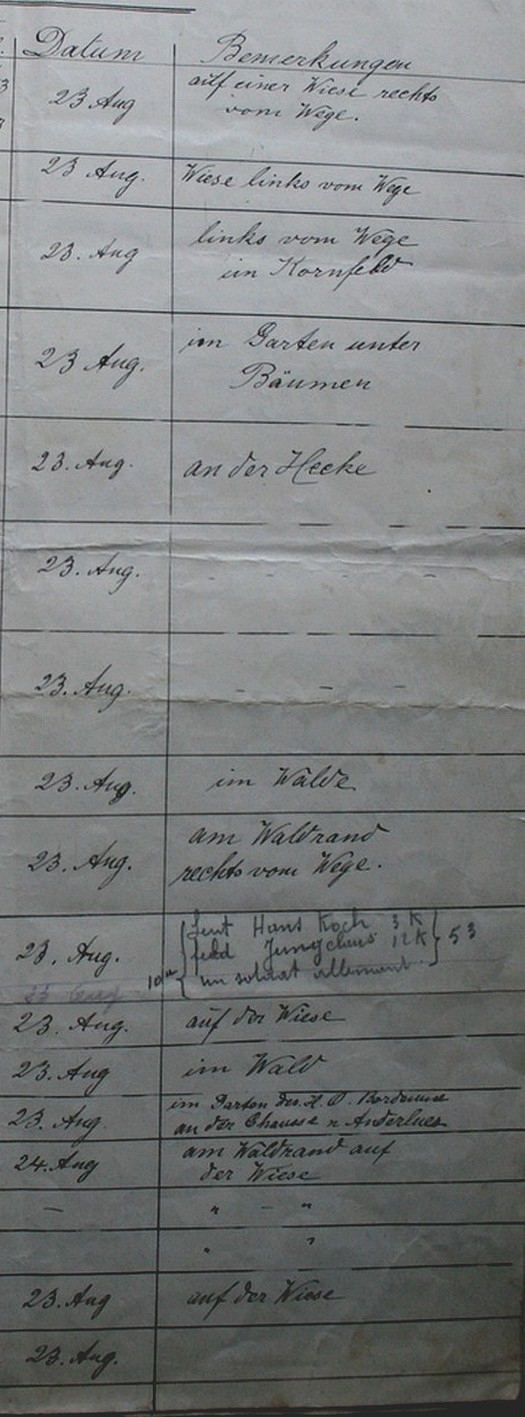 Datum Bemerkungen
23 Aug auf einer Wiese rechts
vom Wege.
23 Aug. Wiese links vom Wege
23. Aug links vom Wege
im Kornfeld
23 Aug. im Garten unter
Bäumen
23. Aug. an der Hecke
23. Aug. - - -
23. Aug. - - -
23. Aug. im Walde
23. Aug. am Waldrand
rechts vom Wege.
Hans Koch 3 K
23. Aug. 12 K 53
un soldat allemant
23. Aug. auf der Wiese
23. Aug im Wald
im Garten des H. O.
23. Aug. an der Chausse n Anderlues
24. Aug am Waldrand auf
der Wiese
— " — "
" "
23. Aug auf der Wiese
23. Aug.